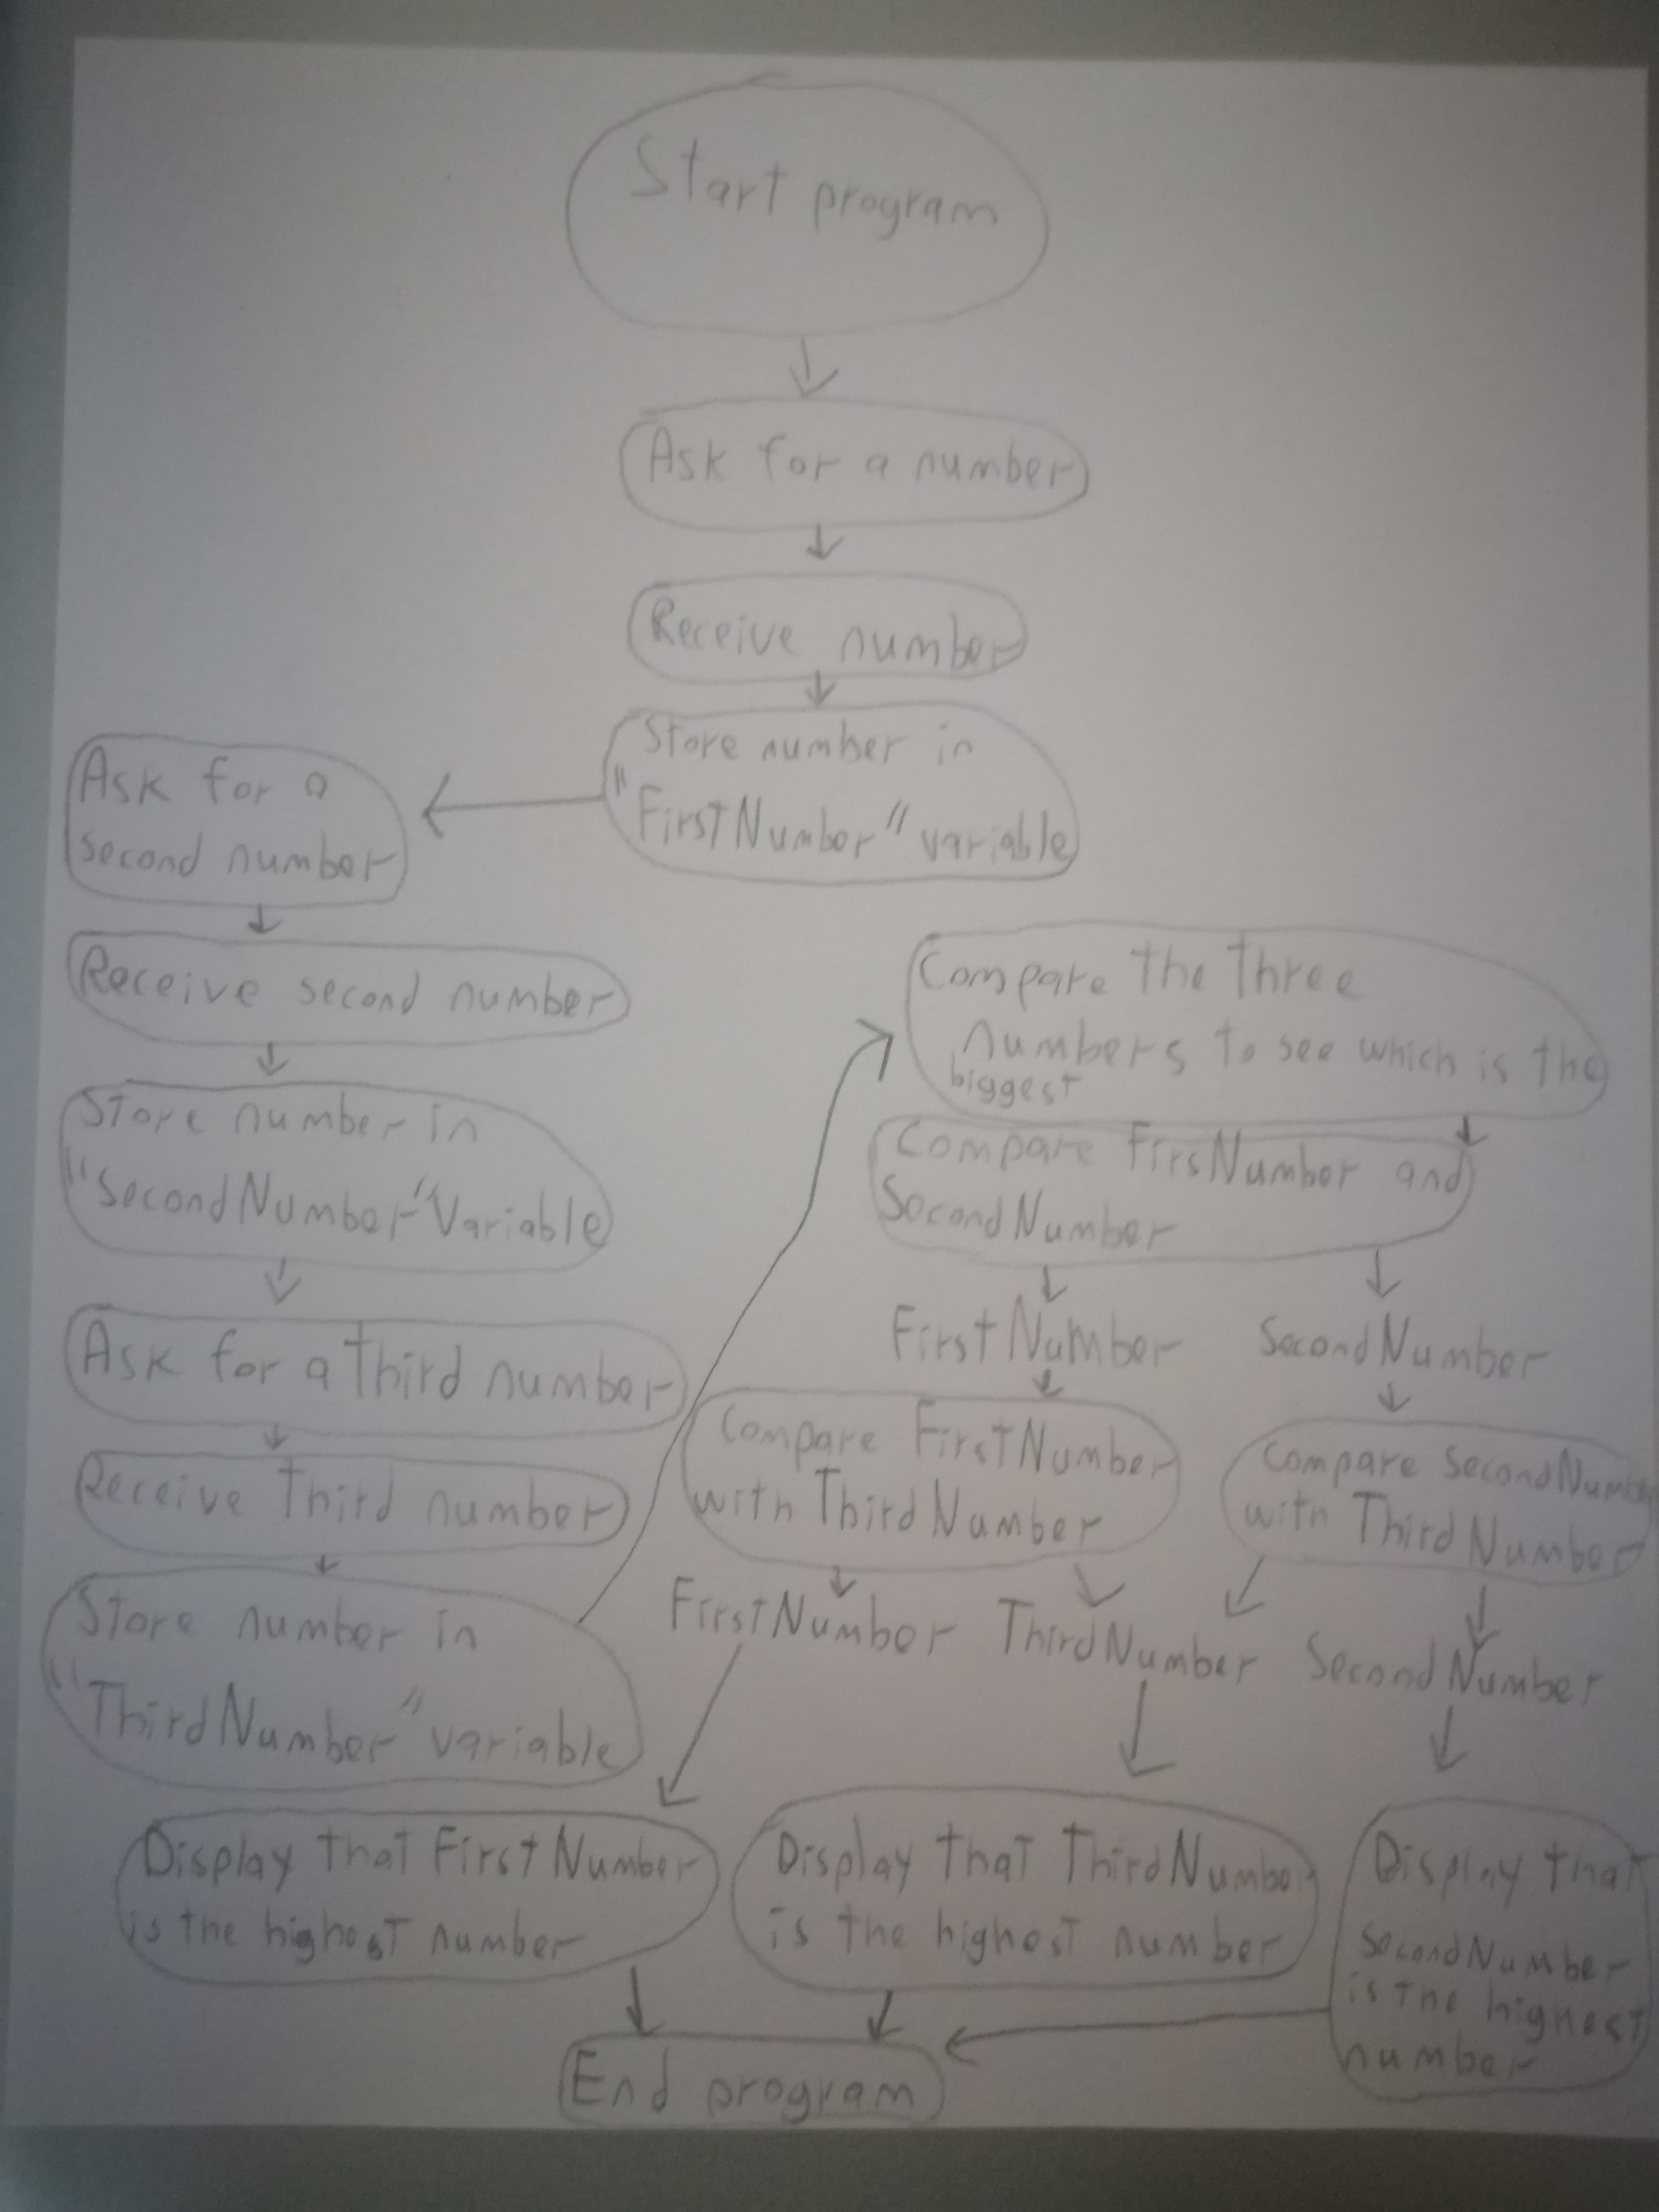 Start program
Ask for a number
Receive number
Store number in
"FirstNumber" variable
Ask for a
second number
Receive second number
Store number in
"SecondNumber" Variable
Ask for a third number
Receive third number
Store number in
"ThirdNumber" variable
Compare the three
numbers to see which is the
biggest
Compare FirsNumber and
SecondNumber
FirstNumber
SecondNumber
Compare FirstNumber
with ThirdNumber
Compare SecondNumber
with ThirdNumber
FirstNumber
ThirdNumber
SecondNumber
Display that FirstNumber
is the highest number
Display that ThirdNumber
is the highest number
Display that
SecondNumber
is the highest
number
End program